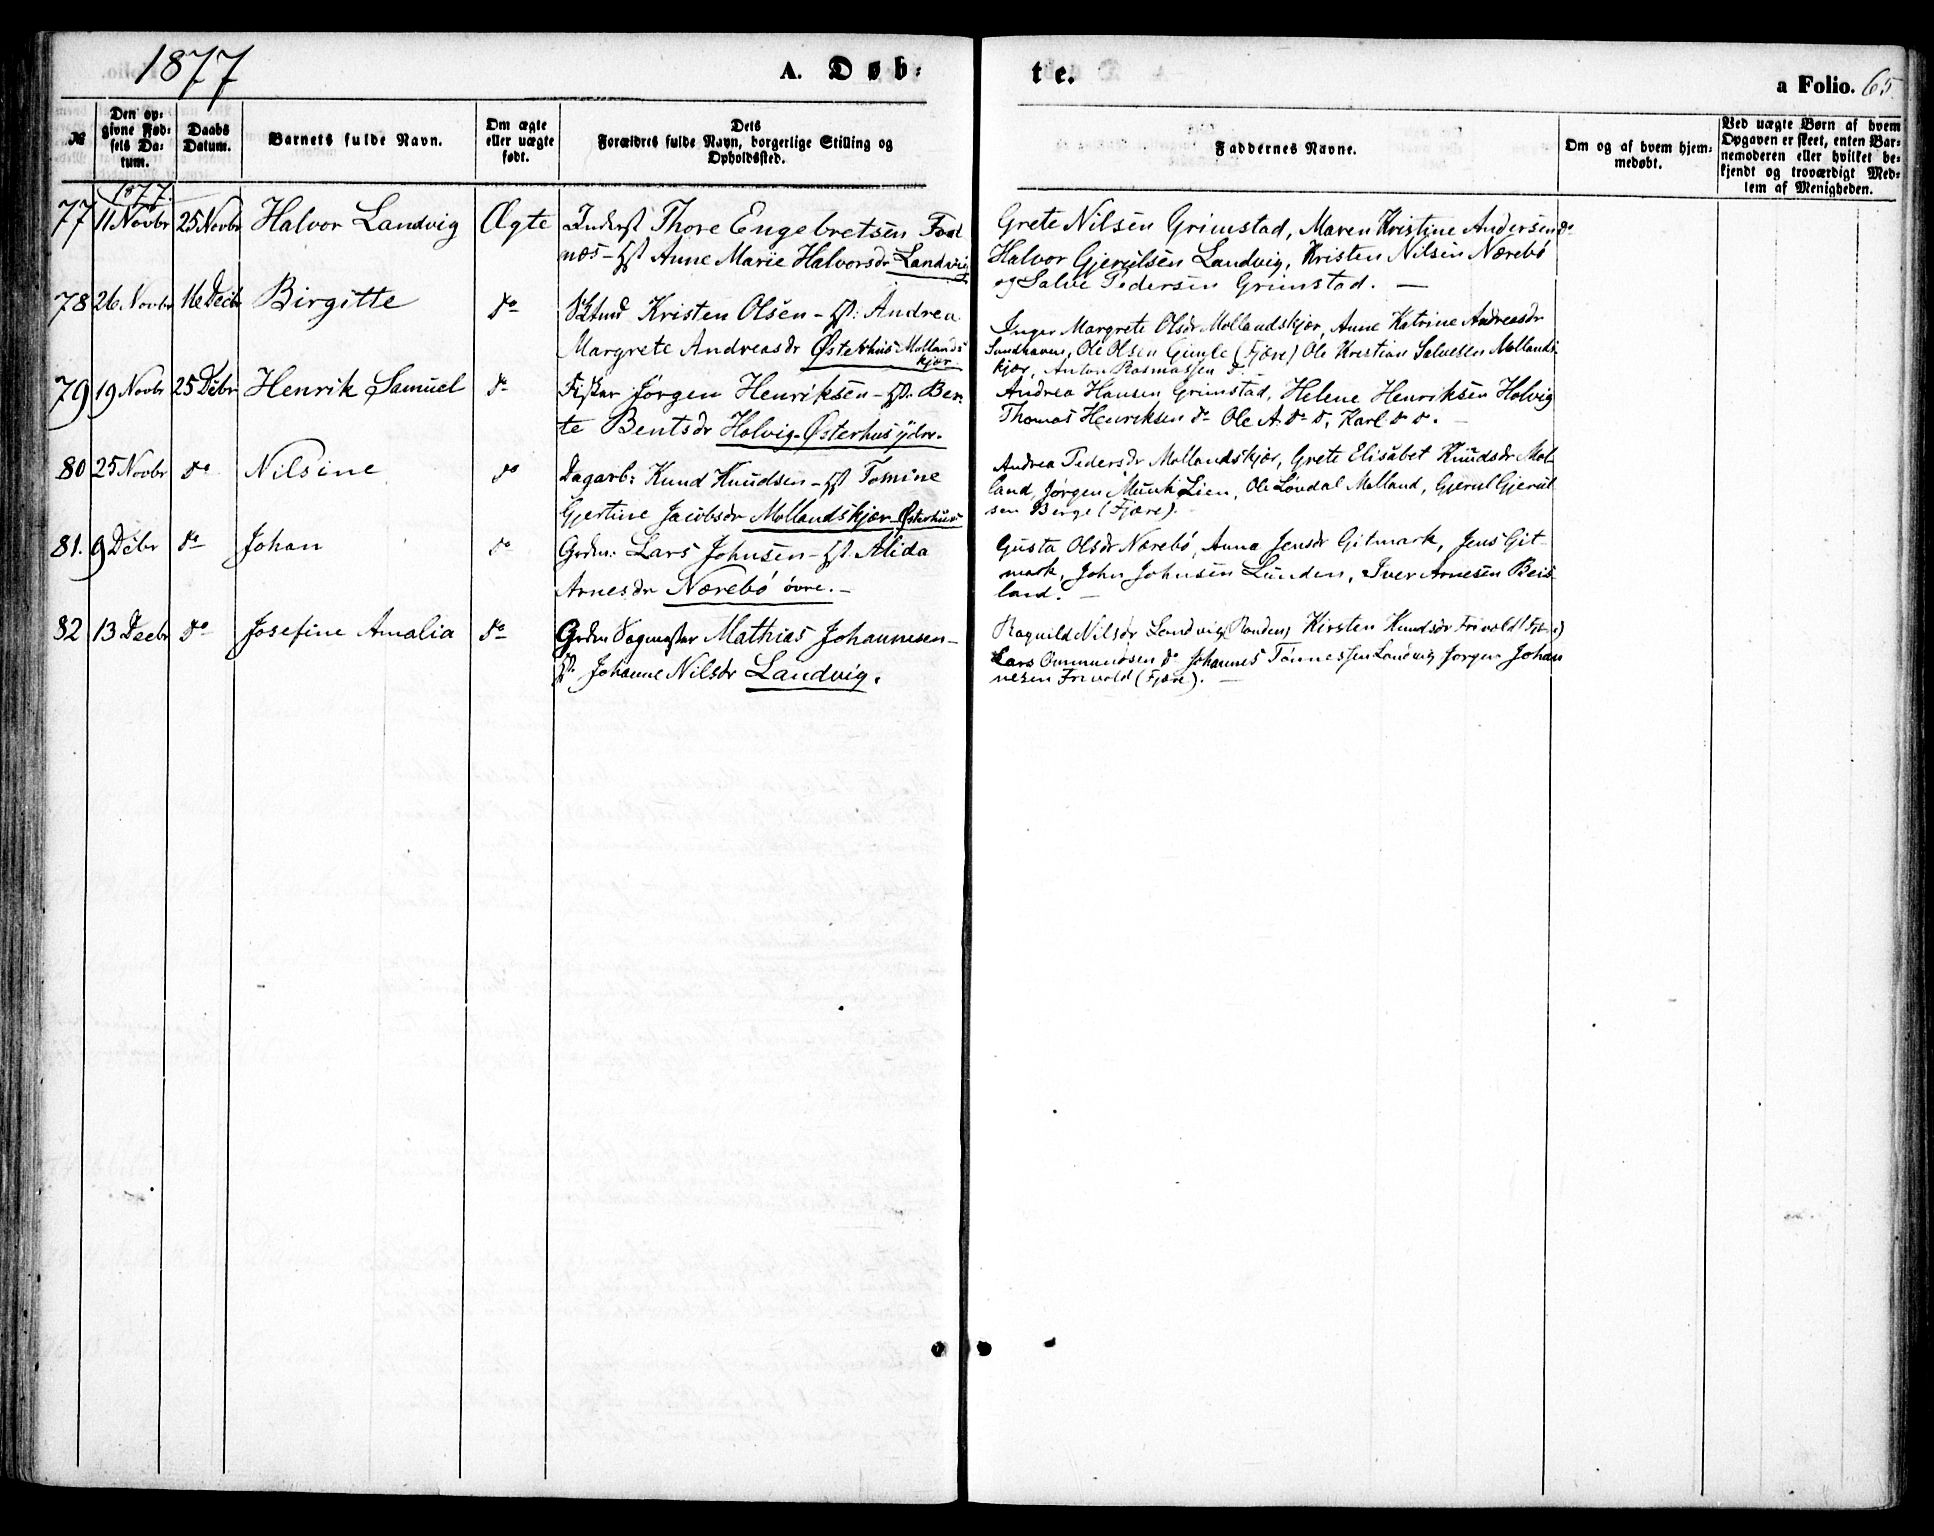 1877
A. Døb-
te.
a Folio. 65.
№
Den op-
givne Fød-
sels Da-
tum.
Daabs
Datum.
Barnets fulde Navn.
Om ægte
eller uægte
født.
Dets
Forældres fulde Navn, borgerlige Stilling og
Opholdssted.
Faddernes Navne.
Om og af hvem hjem-
medøbt.
Ved uægte Børn af hvem
Opgaven er skeet, enten Bar-
nemoderen eller hvilket be-
kjendt og troværdigt Med-
lem af Menigheden.
1877.
77 11 Novbr 25 Novbr Halvor Landvig Ægte Inderst Thore Engebretsen
næs - Hst Anne Marie Halvorsdr Landvig
Grete Nilsen Grimstad, Maren Kristine Andersen do
Halvor Gjerulsen Landvig, Kristen Nilsen Nærebö
og Salve Pedersen Grimstad. —
78 26 Novbr 16 Decbr Birgitte do Kristen Olsen - Hst: Andrea
Margrete Andreasdr Østerhus-Mollands
kjær.
Inger Margrete Olsdr Mollandskjær, Anne Katrine Andreasdr
Ole Olsen Gimle (Fjære) Ole Kristian Salvesen Mollands-
kjær, Anton Rasmussen do.
79 19 Novbr 25 Debr Henrik Samuel do Fisker Jørgen Henriksen - Hst. Ber-
te Bentsdr Holvig-Østerhus ydre.
Andrea Hansen Grimstad, Helene Henriksen Holvig
Thomas Henriksen do Ole A. do do, Karl do do. -
80 25 Novbr do Nilsine do Dagarb: Knud Knudsen - Hst Tomine
Gjertine Jacobsdr Mollandskjær-Østerhus
Andrea Pedersdr Mollandskjær, Grete Elisabet Knudsdr Mol-
land, Jørgen Munk Lien, Ole Løvdal Molland, Gjerul Gjerul
sen Berge (Fjære). -
81. 9 Debr do Johan do Grdm: Lars Johnsen - Hst. Alida
Arnesdr Nærebö övre. -
Gusta Olsdr Nærebö, Anna Jensdr Gitmark, Jens Git-
mark, John Johnsen Lunden, Iver Arnesen Beis-
land. —
82 13 Decbr do Josefine Amalia do Grdm Sagmester Mathias Johannesen -
Hst. Johanne Nilsdr Landvig.
Ragnild Nilsdr Landvig, Kirsten Knudsdr Frivold
Lars Ommundsen do Johannes Tønnessen Landvig Jørgen Johan
nesen Frivold (Fjære). —